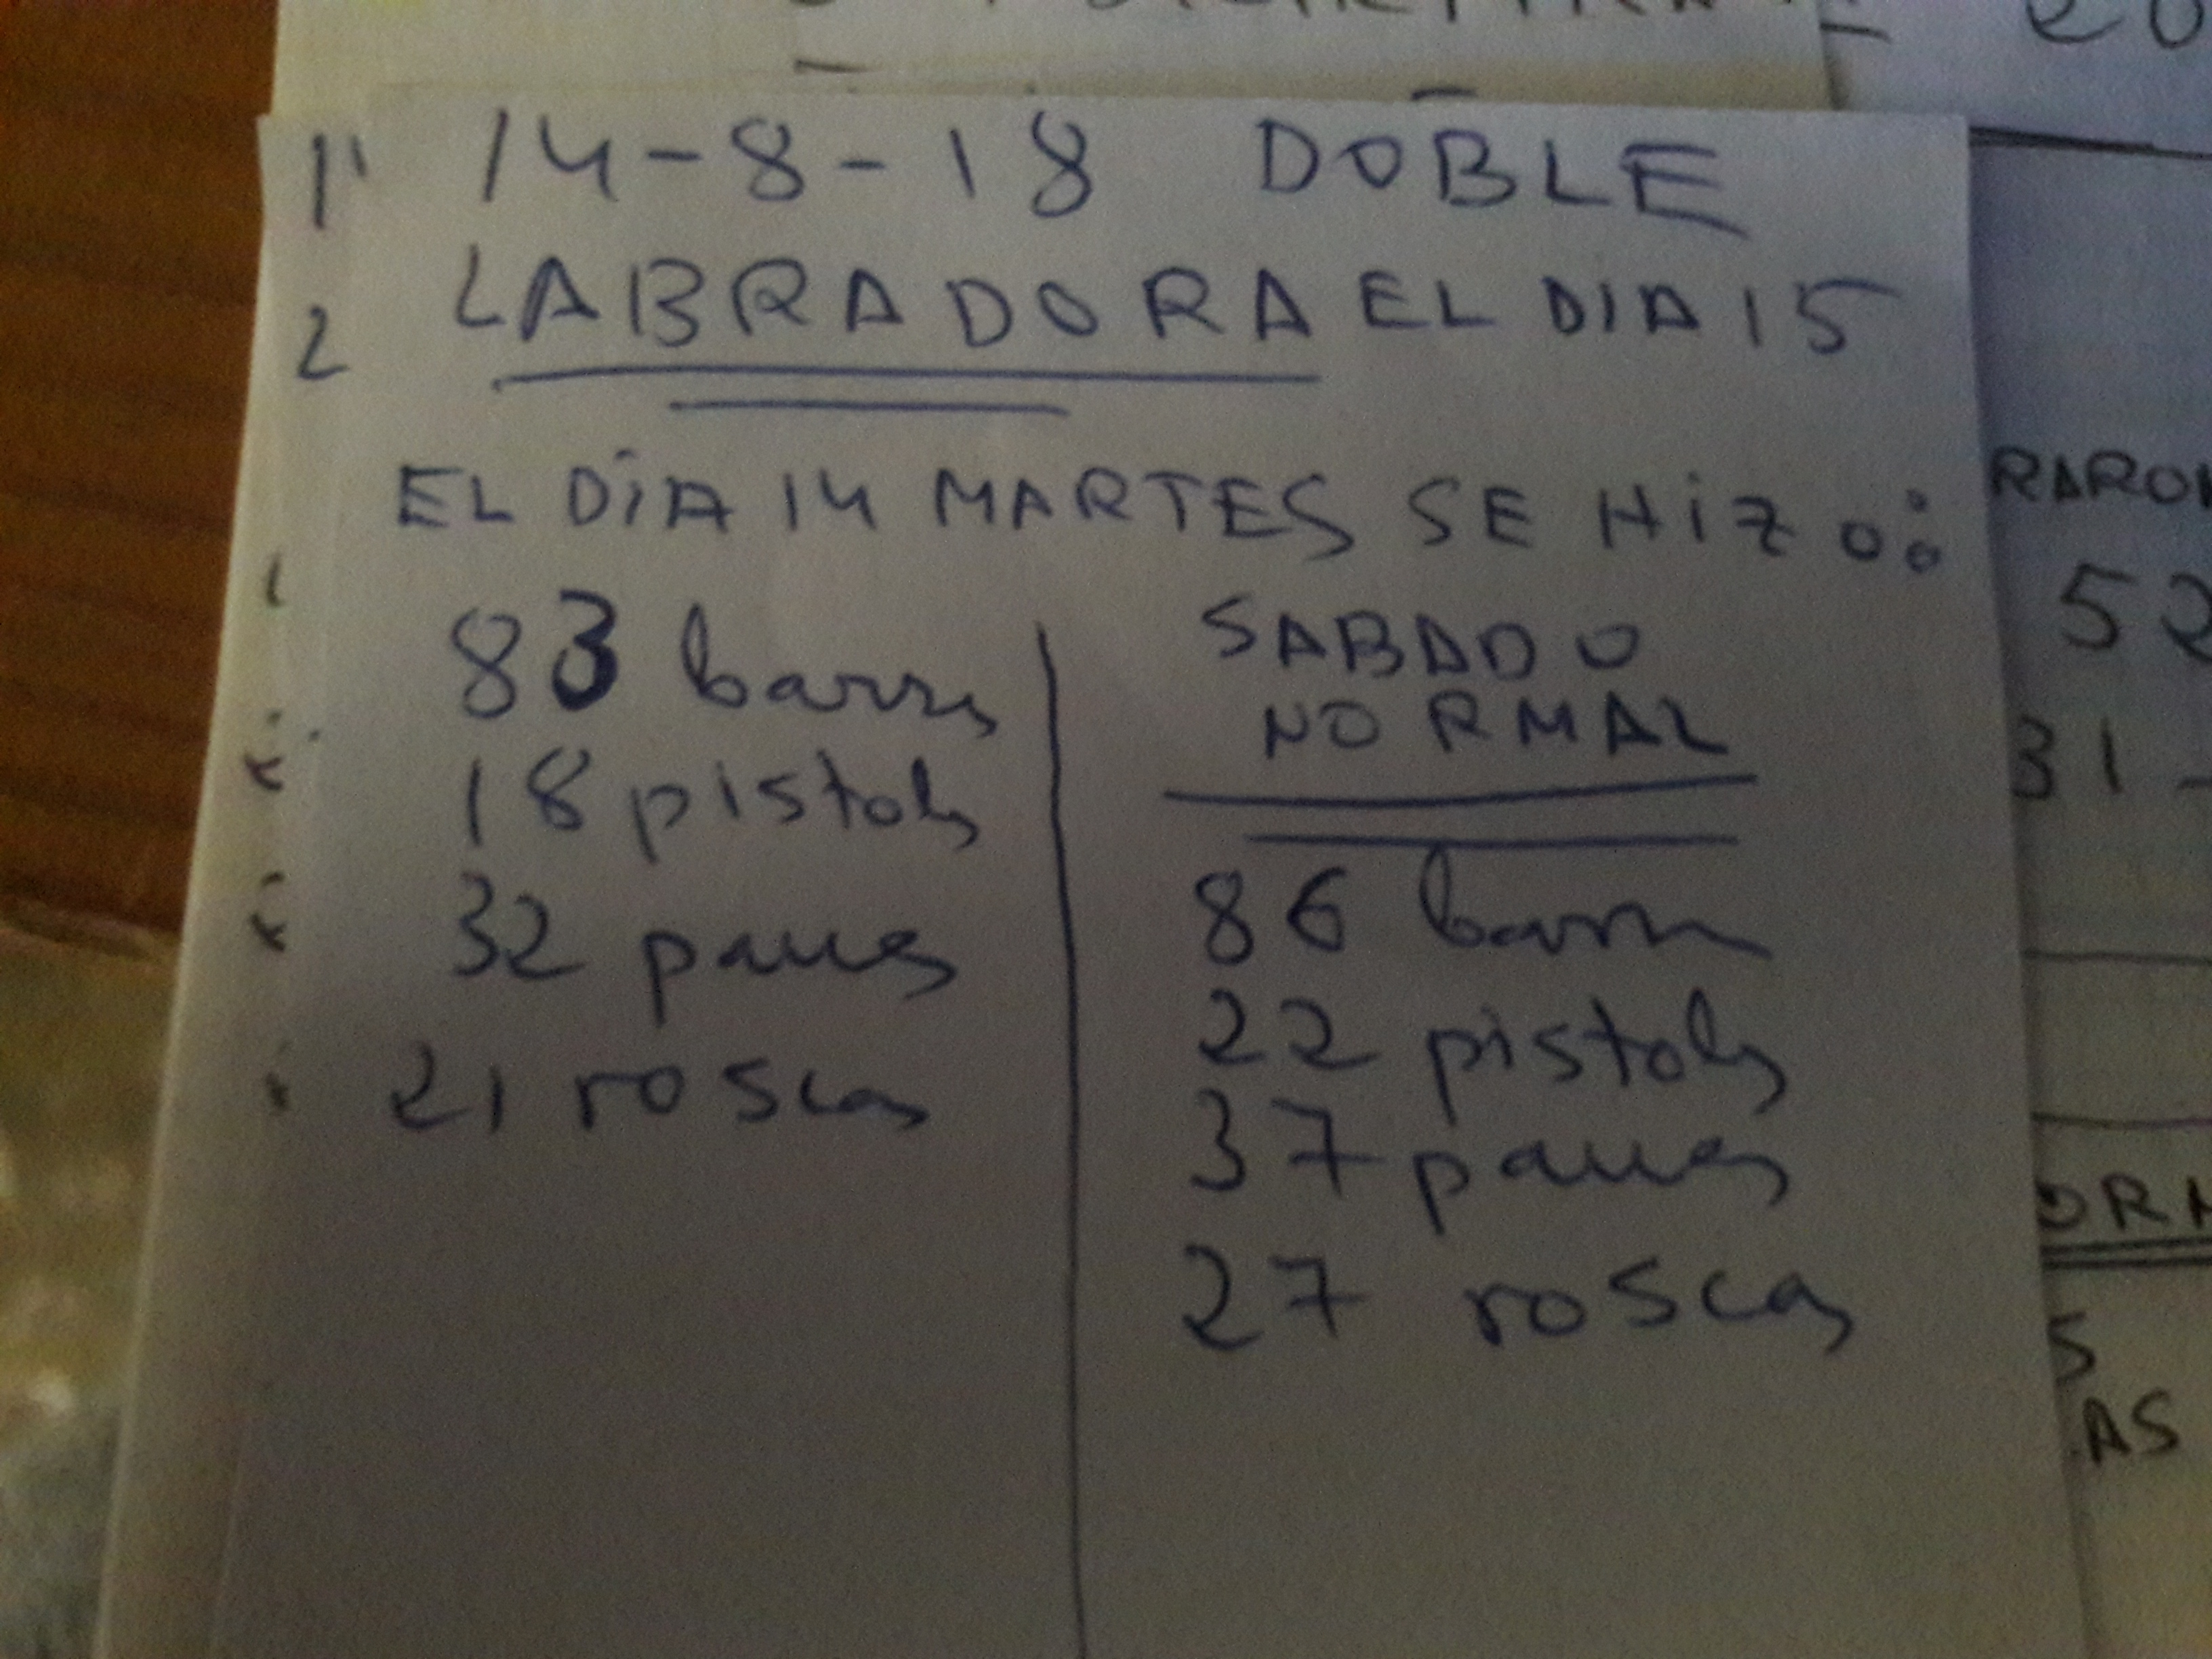 14-8-18 DOBLE
LABRADORA EL DIA 15
EL DÍA 14 MARTES SE HIZO:
83 barras
18 pistolas
32 panes
21 roscas
SABADO
NORMAL
86 barras
22 pistolas
37 panes
27 roscas
52
31
AS